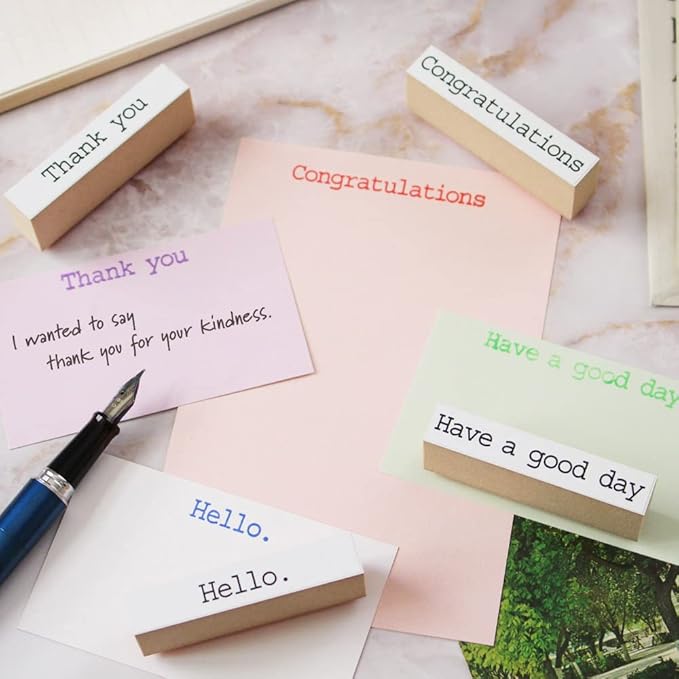 Thank you
Congratulations
Congratulations
Thank you
I wanted to say
thank you for your kindness.
Have a good day
Have a good day
Hello.
Hello.